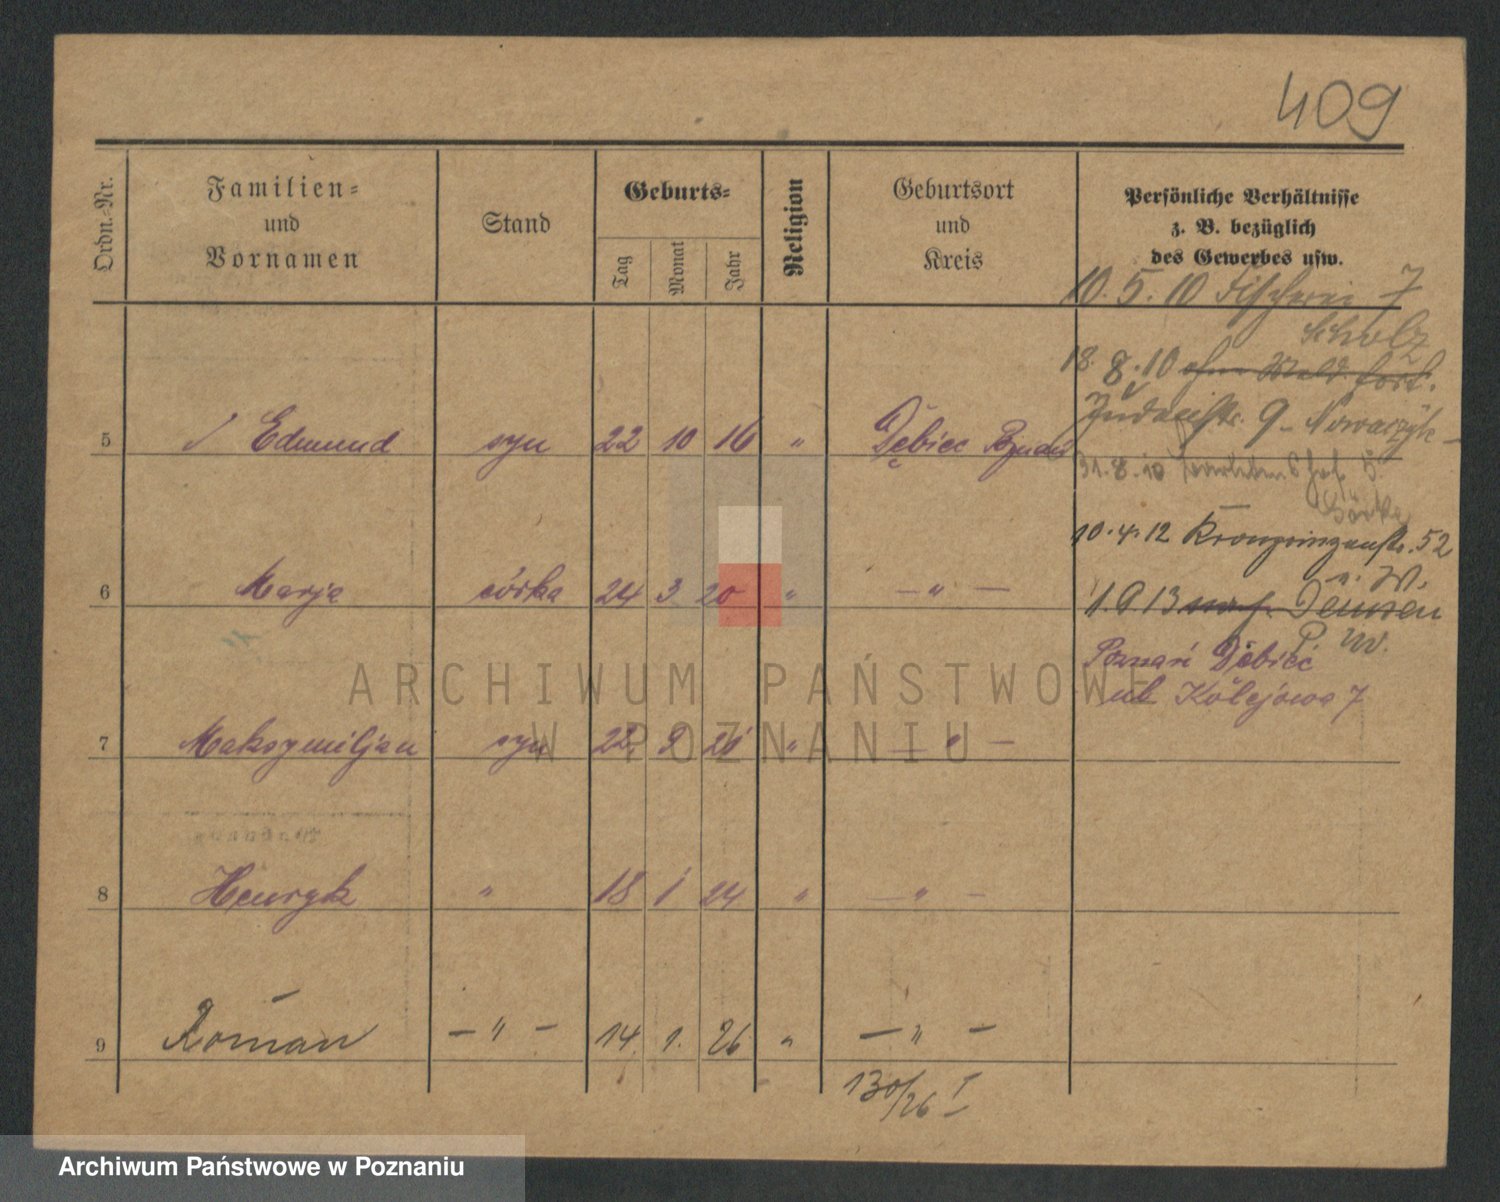 409
Ordn.-Nr.
Familien-
und
Vornamen
Stand
Geburts-
Tag
Monat
Jahr
Religion
Geburtsort
und
Kreis
Persönliche Verhältnisse
z. B. bezüglich
des Gewerbes usw.
10. 5. 10 Fischerei 7
Scholz
18. 8. 10 ohne Meld. fort.
5 Edmund syn 22 10 16 " Dębiec Poznań
9 Nowaczyk
31. 8. 10
10. 4. 12 Kronprinzenstr. 52
6 Marja córka 24 3 20 " — " —
1. 9. 13 nach
P. W.
Poznań Dębiec
ul. Kolejowa 7
7 Maksymiljan syn 22 9 21 " — " —
8 Henryk " 18 1 24 " — " —
9 Roman — " — 14. 1. 26 " — " —
130/26 I
ARCHIWUM PAŃSTWOWE
W POZNANIU
Archiwum Państwowe w Poznaniu